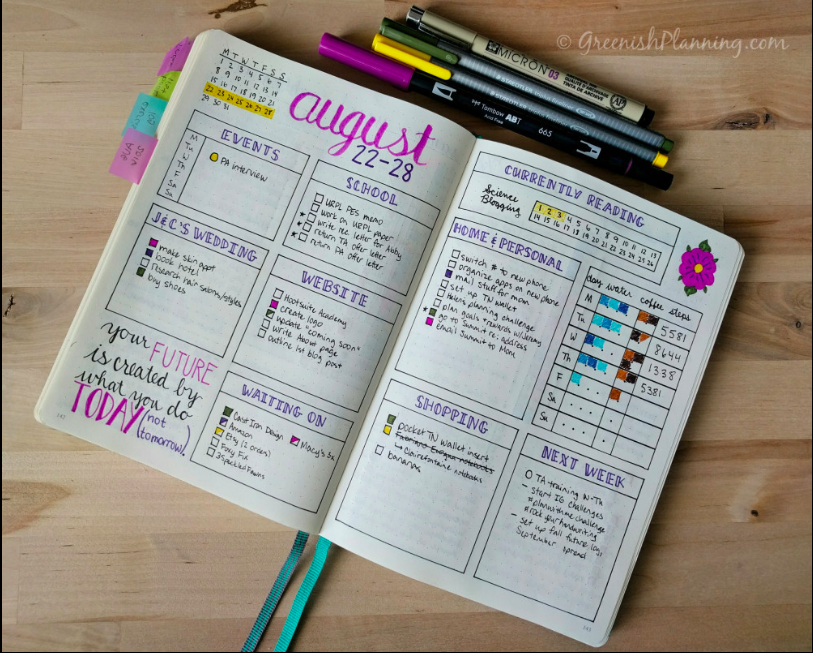 © GreenishPlanning.com
MICRON 03
Tombow ABT
665
M T W T F S S
1 2 3 4 5 6 7
8 9 10 11 12 13 14
15 16 17 18 19 20 21
22 23 24 25 26 27 28
29 30 31
august
22-28
EVENTS
M
Tu
W
Th
F
Sa
Su
PA interview
SCHOOL
URPL PES memo
work on URPL paper
write rec letter for Abby
return TA offer letter
return PA offer letter
J&C'S WEDDING
make skin appt
book hotel
research hair salons/styles
buy shoes
WEBSITE
Hootsuite Academy
create logo
update "coming soon"
write About page
outline 1st blog post
your FUTURE
is created by
what you do
TODAY (not
tomorrow).
WAITING ON
Cast Iron Design
Amazon
Etsy (2 orders)
Foxy Fix
3 Speckled Fawns
Macy's
CURRENTLY READING
Science
Blogging
1 2 3 4 5 6 7 8 9 10 11 12 13
14 15 16 17 18 19 20 21 22 23 24 25 26
HOME & PERSONAL
switch # to new phone
organize apps on new phone
mail stuff for mom
set up TN wallet
planning challenge
plan goals + rewards w/Jeremy
go to Summit re: address
email Summit to Mom
day water coffee steps
M 5581
Tu 8644
W 1338
Th 5381
F
Sa
Su
SHOPPING
pocket TN wallet insert
Clairefontaine notebooks
bananas
NEXT WEEK
TA training W-Th
- start IG challenges
#planwithmechallenge
#rockyourhandwriting
- set up fall future log,
September spread